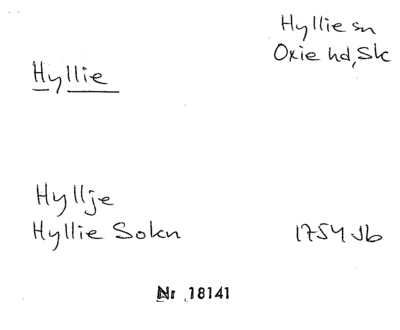 Hyllie sn
Oxie hd, Sk
Hyllie
Hyllje
Hyllie Sokn 1754 Jb
Nr 18141